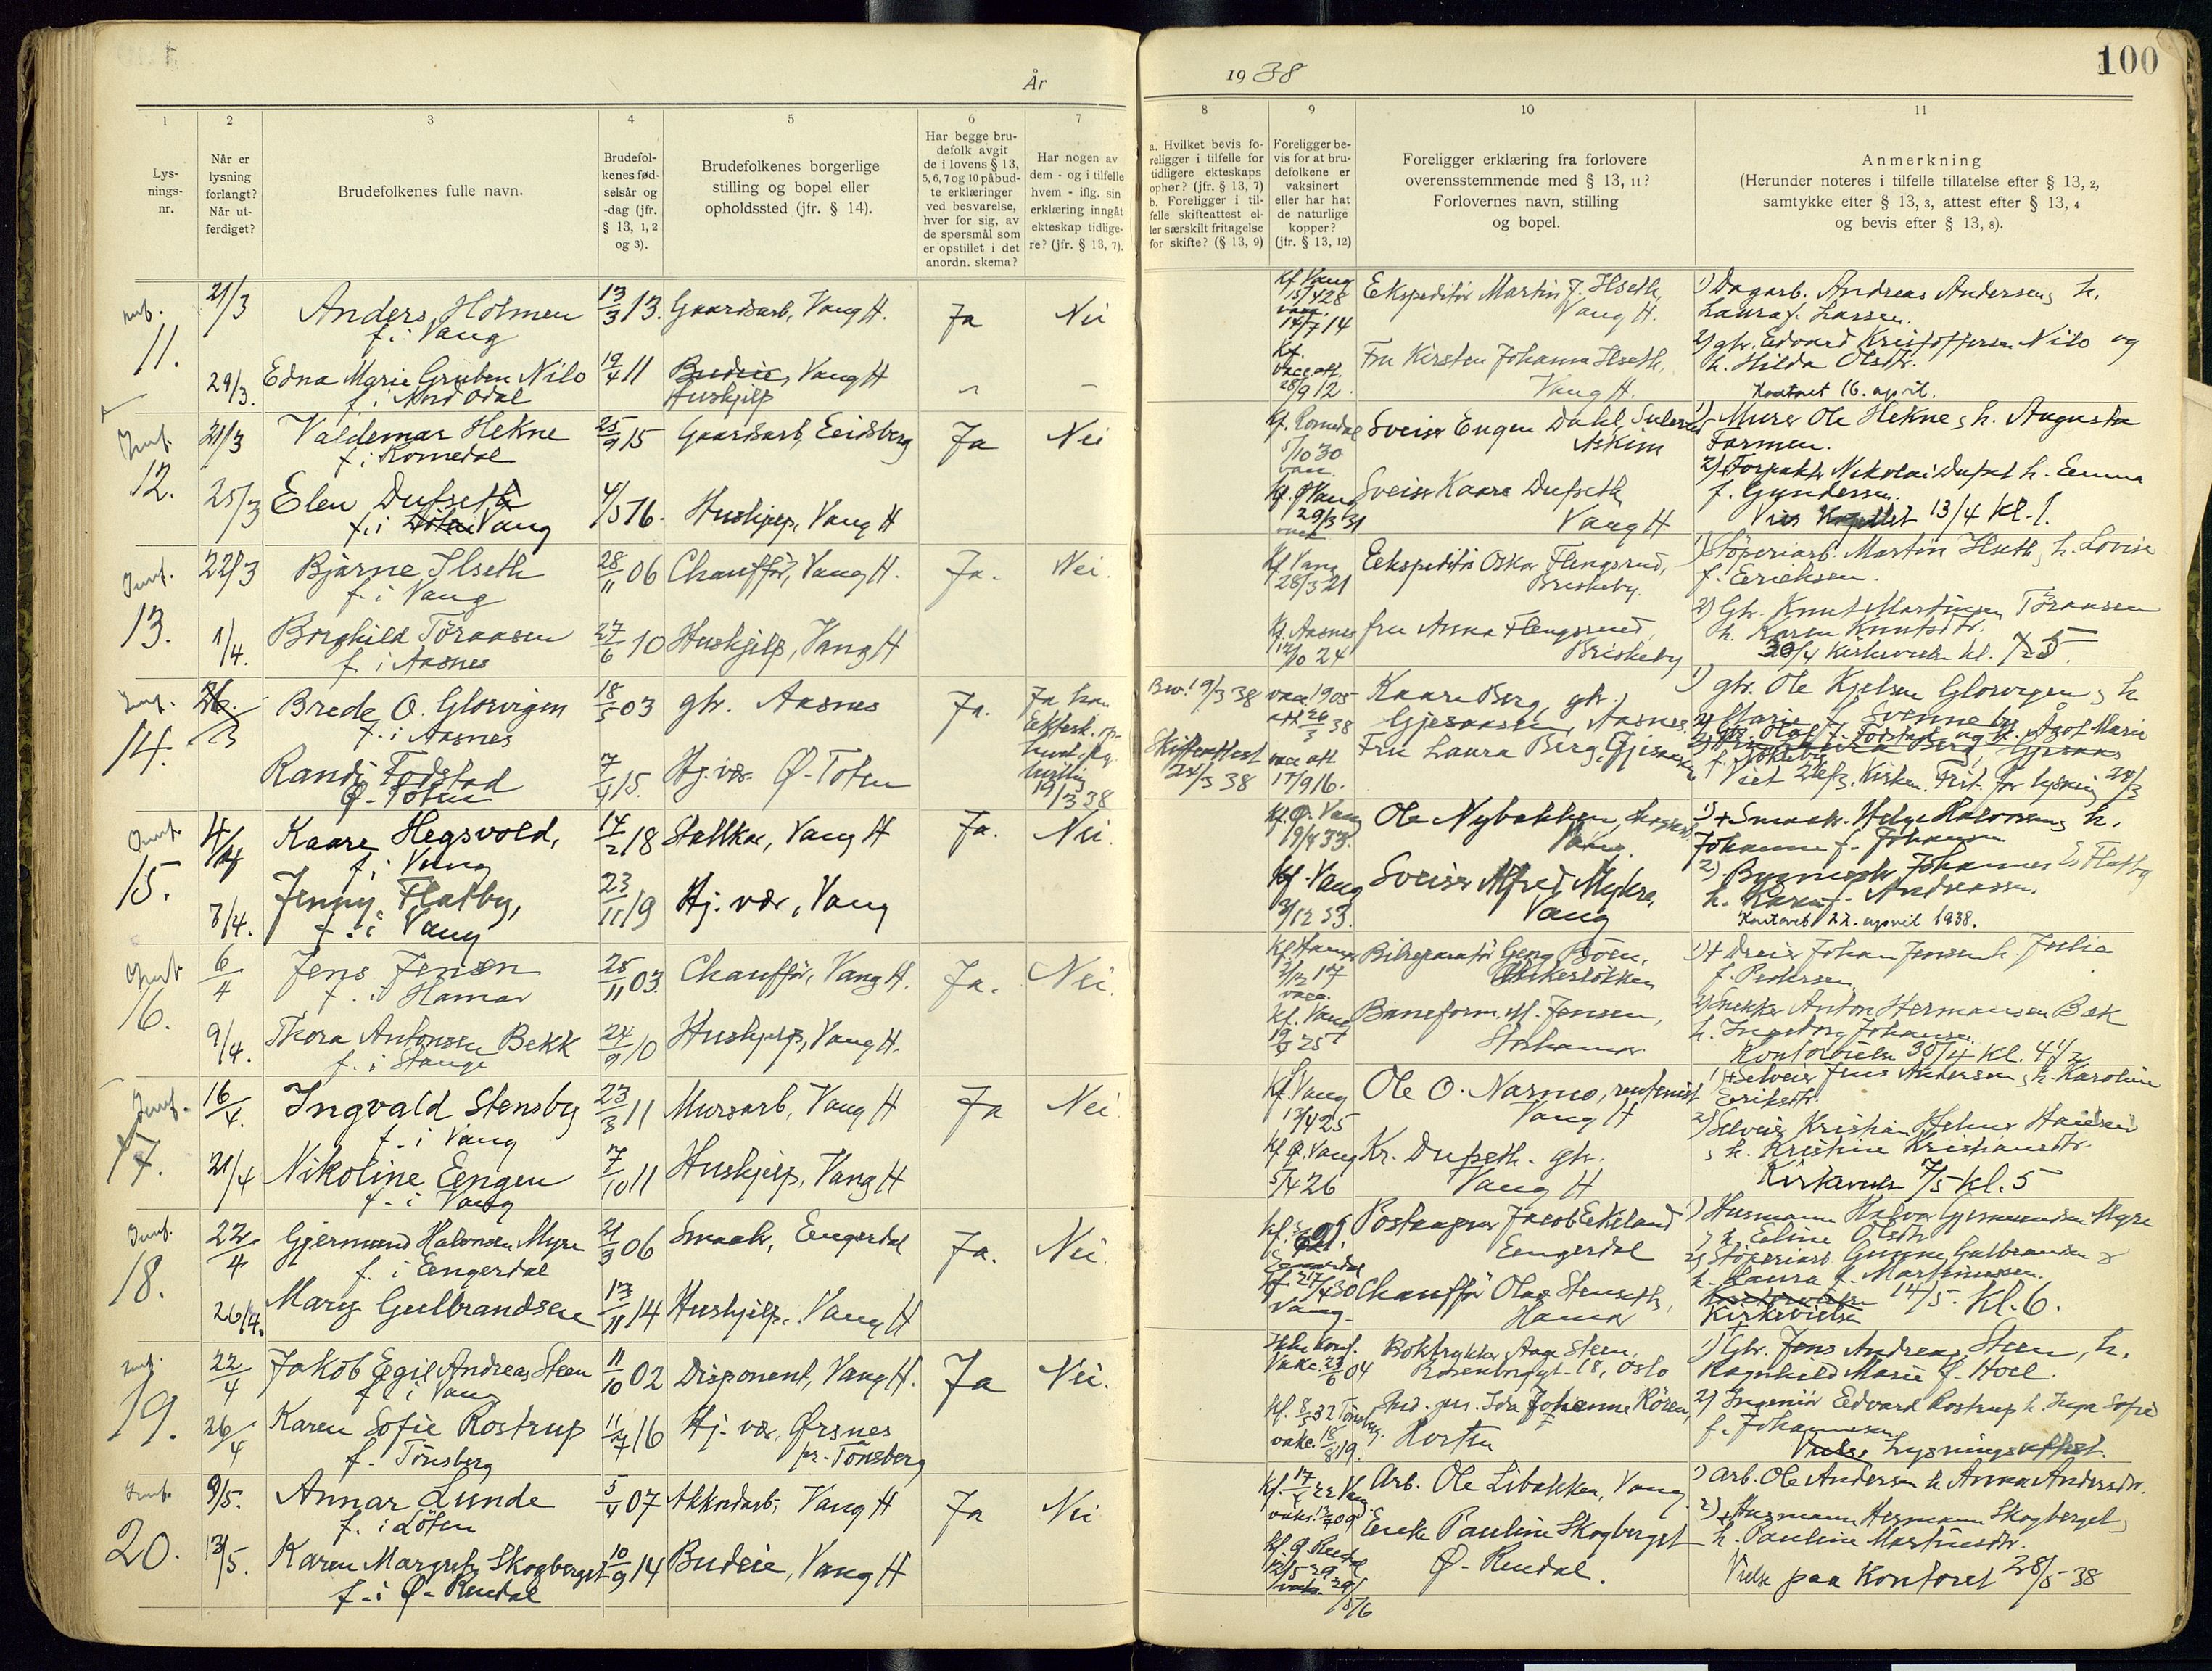 År
1938
100
1
2
3
4
5
6
7
8
9
10
11
Lys-
nings-
nr.
Når er
lysning
forlangt?
Når ut-
ferdiget?
Brudefolkenes fulle navn.
Brudefol-
kenes fød-
selsår og
-dag (jfr.
§ 13, 1, 2
og 3).
Brudefolkenes borgerlige
stilling og bopel eller
opholdssted (jfr. § 14).
Har begge bru-
defolk avgit
de i lovens § 13,
5, 6, 7 og 10 påbud-
te erklæringer
ved besvarelse,
hver for sig, av
de spørsmål som
er opstillet i det
anordn. skema?
Har nogen av
dem - og i tilfelle
hvem - iflg. sin
erklæring inngåt
ekteskap tidlige-
re? (jfr. § 13, 7).
a. Hvilket bevis fo-
religger i tilfelle for
tidligere ekteskaps
ophør? (jfr. § 13, 7)
b. Foreligger i til-
felle skifteattest el-
ler særskilt fritagelse
for skifte? (§ 13, 9)
Foreligger be-
vis for at bru-
defolkene er
vaksinert
eller har hat
de naturlige
kopper?
(jfr. § 13, 12)
Foreligger erklæring fra forlovere
overensstemmende med § 13, 11?
Forlovernes navn, stilling
og bopel.
Anmerkning
(Herunder noteres i tilfelle tillatelse efter § 13, 2,
samtykke efter § 13, 3, attest efter § 13, 4
og bevis efter § 13, 8).
11.
21/3
Anders Holmen
f. i Vang
13/3 13.
Gaardsarb, Vang H.
Ja
Nei
Kf. Vang
15/4 28
14/7 14
Ekspeditør Martin J. Ilseth,
Vang H.
1) Dagarb. Andreas Andersen, h.
Laura f. Larsen.
29/3.
Edna Marie Gruben Nilo
f. i Nord Odal
19/4 11
Budeie, Vang H
Hushjelp
28/9 12.
Fru Kirsten Johanna Ilseth,
Vang H.
2) gbr. Edvard Kristoffersen Nilo og
h. Hilda Olsdtr.
Kontoret 16. april.
12.
21/3
Valdemar Hekne
f. i Romedal
25/9 15
Gaardsarb, Eidsberg
Ja
Nei
Kf. Romedal
5/10 30
Sveiser Eugen Dahl,
Askim
1) Murer Ole Hekne, h. Augusta
Farmen.
25/3
Elen Dufseth
f. i Vang
4/5 16.
Hushjelp, Vang H
Kf. Ø Vang
29/3 31
Sveiser Kaare Dufseth
Vang H
2) Forpakter Nikolai Dufset h. Emma
f. Gundersen.
13/4 kl. 1.
13.
22/3
Bjarne Ilseth
f. i Vang
28/11 06
Chauffør, Vang H.
Ja.
Nei.
Kf. Vang
28/3 21
Ekspeditør Oskar Flengsrud,
Briskeby.
1) Støperiarb. Martin Ilseth, h. Lovise
f. Eriksen.
1/4.
Borghild Töraasen
f. i Aasnes
27/6 10
Hushjelp, Vang H
Kf. Aasnes
12/10 24
fru Anna Flengsrud,
Briskeby
2) Gbr. Knut Martinsen Töraasen
h. Karen Knutsdtr.
30/4 kirkevielse kl. 5.
14.
Brede O. Glorvigen
f. i Aasnes
18/5 03
gbr. Aasnes
Ja.
Ja han
19/3 38
Bev. 19/3 38
vacc. 1905
att. 26/3 38
Kaare Berg, gbr.,
Gjesaasen, Aasnes.
1) gbr. Ole Kjelsen Glorvigen, h
Marie f. Svenneby
Randi Fodstad
Ø-Toten
7/4 15.
Hj. vær. Ø-Toten
Skifteattest
24/3 38
vacc att
17/9 16.
Fru Laura Berg, Gjesaasen
2) Gbr. Olaf J. Fodstad og h. Agot Marie
Viet 26/3. Kirken. Frit. for lysning 24/3
15.
Kaare Hegsvold,
f. i Vang
14/2 18
Stallkar, Vang H
Ja.
Nei.
Kf. Ø. Vang
19/4 33.
Ole Nybakken,
Vang.
1) + Smaabr. Helge Halvorsen, h.
Johanne f. Johansen
8/4.
Jenny Flatby,
f. i Vang
23/11 19
Hj. vær, Vang
Kf. Vang
3/12 33.
Sveiser Alfred Myhre,
Vang
2) Johannes E. Flatby
h. Karen f. Andreassen.
Kontoret 22. april 1938.
16.
6/4
Jens Jensen
f. i Hamar
25/11 03.
Chauffør, Vang H.
Ja.
Nei.
Kf Hamar
2/12 17
Bilreparatør Georg Boen,
1) + Dreier Johan Jensen h. Julie
f. Pedersen.
9/4.
Thora Antonsen Bekk
f. i Stange
24/9 10
Hushjelp, Vang H.
Kf. Vang
Baneform. M. Jensen,
Storhamar
2) Snekker Anton Hermansen Bæk
h. Ingeborg Johansen.
Kontorvielse 30/4 kl. 4 1/2
17.
16/4.
Ingvald Stensby
f. i Vang
23/3 11
Murarb, Vang H
Ja
Nei.
Kf. Vang
12/4 25
Ole O. Narmo, rentenist
Vang H
1) + Selveier Jens Andersen, h. Karoline
Eriksdtr.
21/4
Nikoline Eengen
f. i Vang
7/10 11
Hushjelp, Vang H
Kf Ø. Vang
5/4 26
Kr. Dufseth. gbr.
Vang H
2) Selveier Kristian Helmer Hansen
, h. Kristine Kristiansdtr.
Kirkeviels 7/5 kl. 5
18.
22/4
Gjermund Halvorsen Myre
f. i Engerdal
21/3 06
Smaabr, Engerdal
Ja.
Nei.
Postaapner Jacob Ekeland
Engerdal
1) Husmann Halvor Gjermundsen Myre
, h. Eline Olsdtr
26/4.
Mary Gulbrandsen
13/11 14
Hushjelp, Vang H
Kf 27/4 30
Vang
Chauffør Olaf Stenseth,
Hamar
2) Støperiarb. Gunne Gulbrandsen &
h. Laura f. Martinussen.
Kirkevielse 14/5. kl. 6.
19.
22/4
Jakob Egil Andreas Steen
f. i Vang
11/10 02
Disponent, Vang H.
Ja
Nei.
Ikke konf.
Vakc. 23/6 04
Boktrykker Aage Steen,
Rosenborggt. 18, Oslo
1) Gbr. Jens Andreas Steen, h.
Ragnhild Marie f. Hoel.
26/4
Karen Sofie Rostrup
f. Tønsberg
11/7 16
Hj. vær, Ørsnes
pr. Tønsberg
Kf. 8/5 32 Tønsberg.
vakc. 18/8 19.
Ida Johanne Rören,
Horten
2) Ingeniør Edvard Rostrup h. Inga Sofie
f. Johannesen
Lysningsattest.
20.
9/5.
Annar Lunde
f. i Löten
5/4 07
Akkordarb, Vang H
Ja
Nei
Arb. Ole Libakken, Vang.
1) Arb. Ole Andersen h. Anna Andersdtr.
13/5.
Karen Margrete Skogberget
f. i Ø-Rendal
10/9 14
Budeie, Vang H
Kf. Ø. Rendal
Enke Pauline Skogberget
Ø-Rendal.
2) + Husmann Hermann Skogberget,
h. Pauline Martinsdtr.
Vielse paa Kontoret 28/5 38